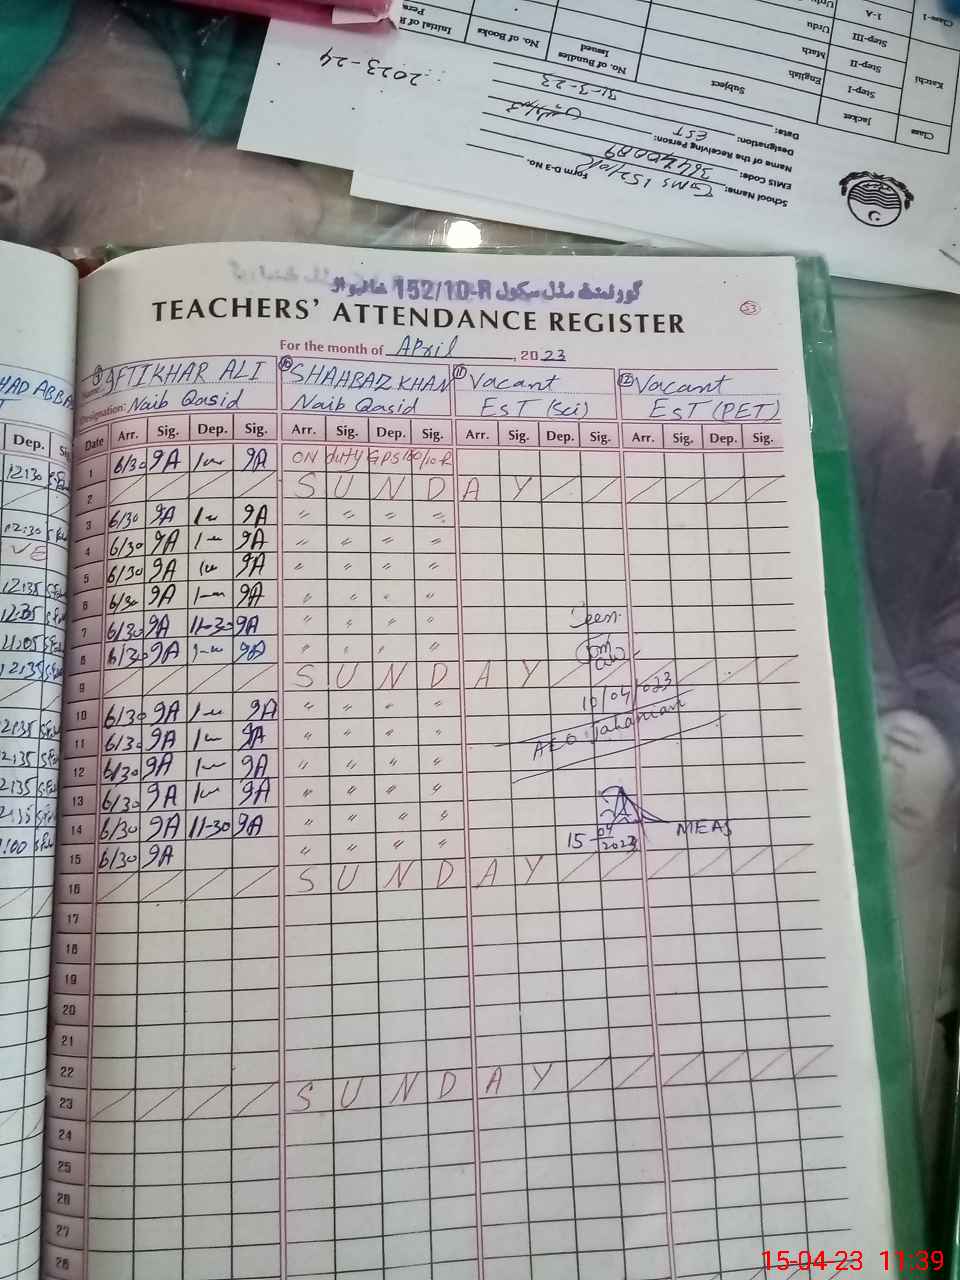 2023-24
School Name: GMS 152/10R
Form D-3 No.
EMIS Code: 36440089
Name of the Receiving Person:
Designation: EST
Date: 31-3-23
Class Jacket Subject No. of Bundles Issued No. of Books
Katchi Step-I English
Step-II Math
Step-III Urdu
Class-1 1-A
گورنمنٹ مڈل سکول 152/10-R خانیوال
TEACHERS' ATTENDANCE REGISTER
53
For the month of April, 2023
9 IFTIKHAR ALI 10 SHAHBAZ KHAN 11 Vacant 12 Vacant
Designation: Naib Qasid Naib Qasid EST (Sci) EST (PET)
Date Arr. Sig. Dep. Sig. Arr. Sig. Dep. Sig. Arr. Sig. Dep. Sig. Arr. Sig. Dep. Sig.
1 6/30 9A 9A ON duty GPS
2 S U N D A Y
3 6/30 9A 9A 〃 〃 〃 〃
4 6/30 9A 9A 〃 〃 〃 〃
5 6/30 9A 9A 〃 〃 〃 〃
6 6/30 9A 9A 〃 〃 〃 〃
7 6/30 9A 11-30 9A 〃 〃 〃 〃
8 6/30 9A 9A 〃 〃 〃 〃
Seen
9 S U N D A Y
10 6/30 9A 9A 〃 〃 〃 〃
10/04/023
11 6/30 9A 9A 〃 〃 〃 〃
AEO Jahanian
12 6/30 9A 9A 〃 〃 〃 〃
13 6/30 9A 9A 〃 〃 〃 〃
14 6/30 9A 11-30 9A 〃 〃 〃 〃
15 6/30 9A 〃 〃 〃 〃
15-04-2023 MEAs
16 S U N D A Y
17
18
19
20
21
22
23 S U N D A Y
24
25
26
27
28
HAD ABBA
Dep.
12:30
12:30
12:35
12:35
11:05
12:35
12:35
12:35
12:35
12:35
1:00
15-04-23 11:39